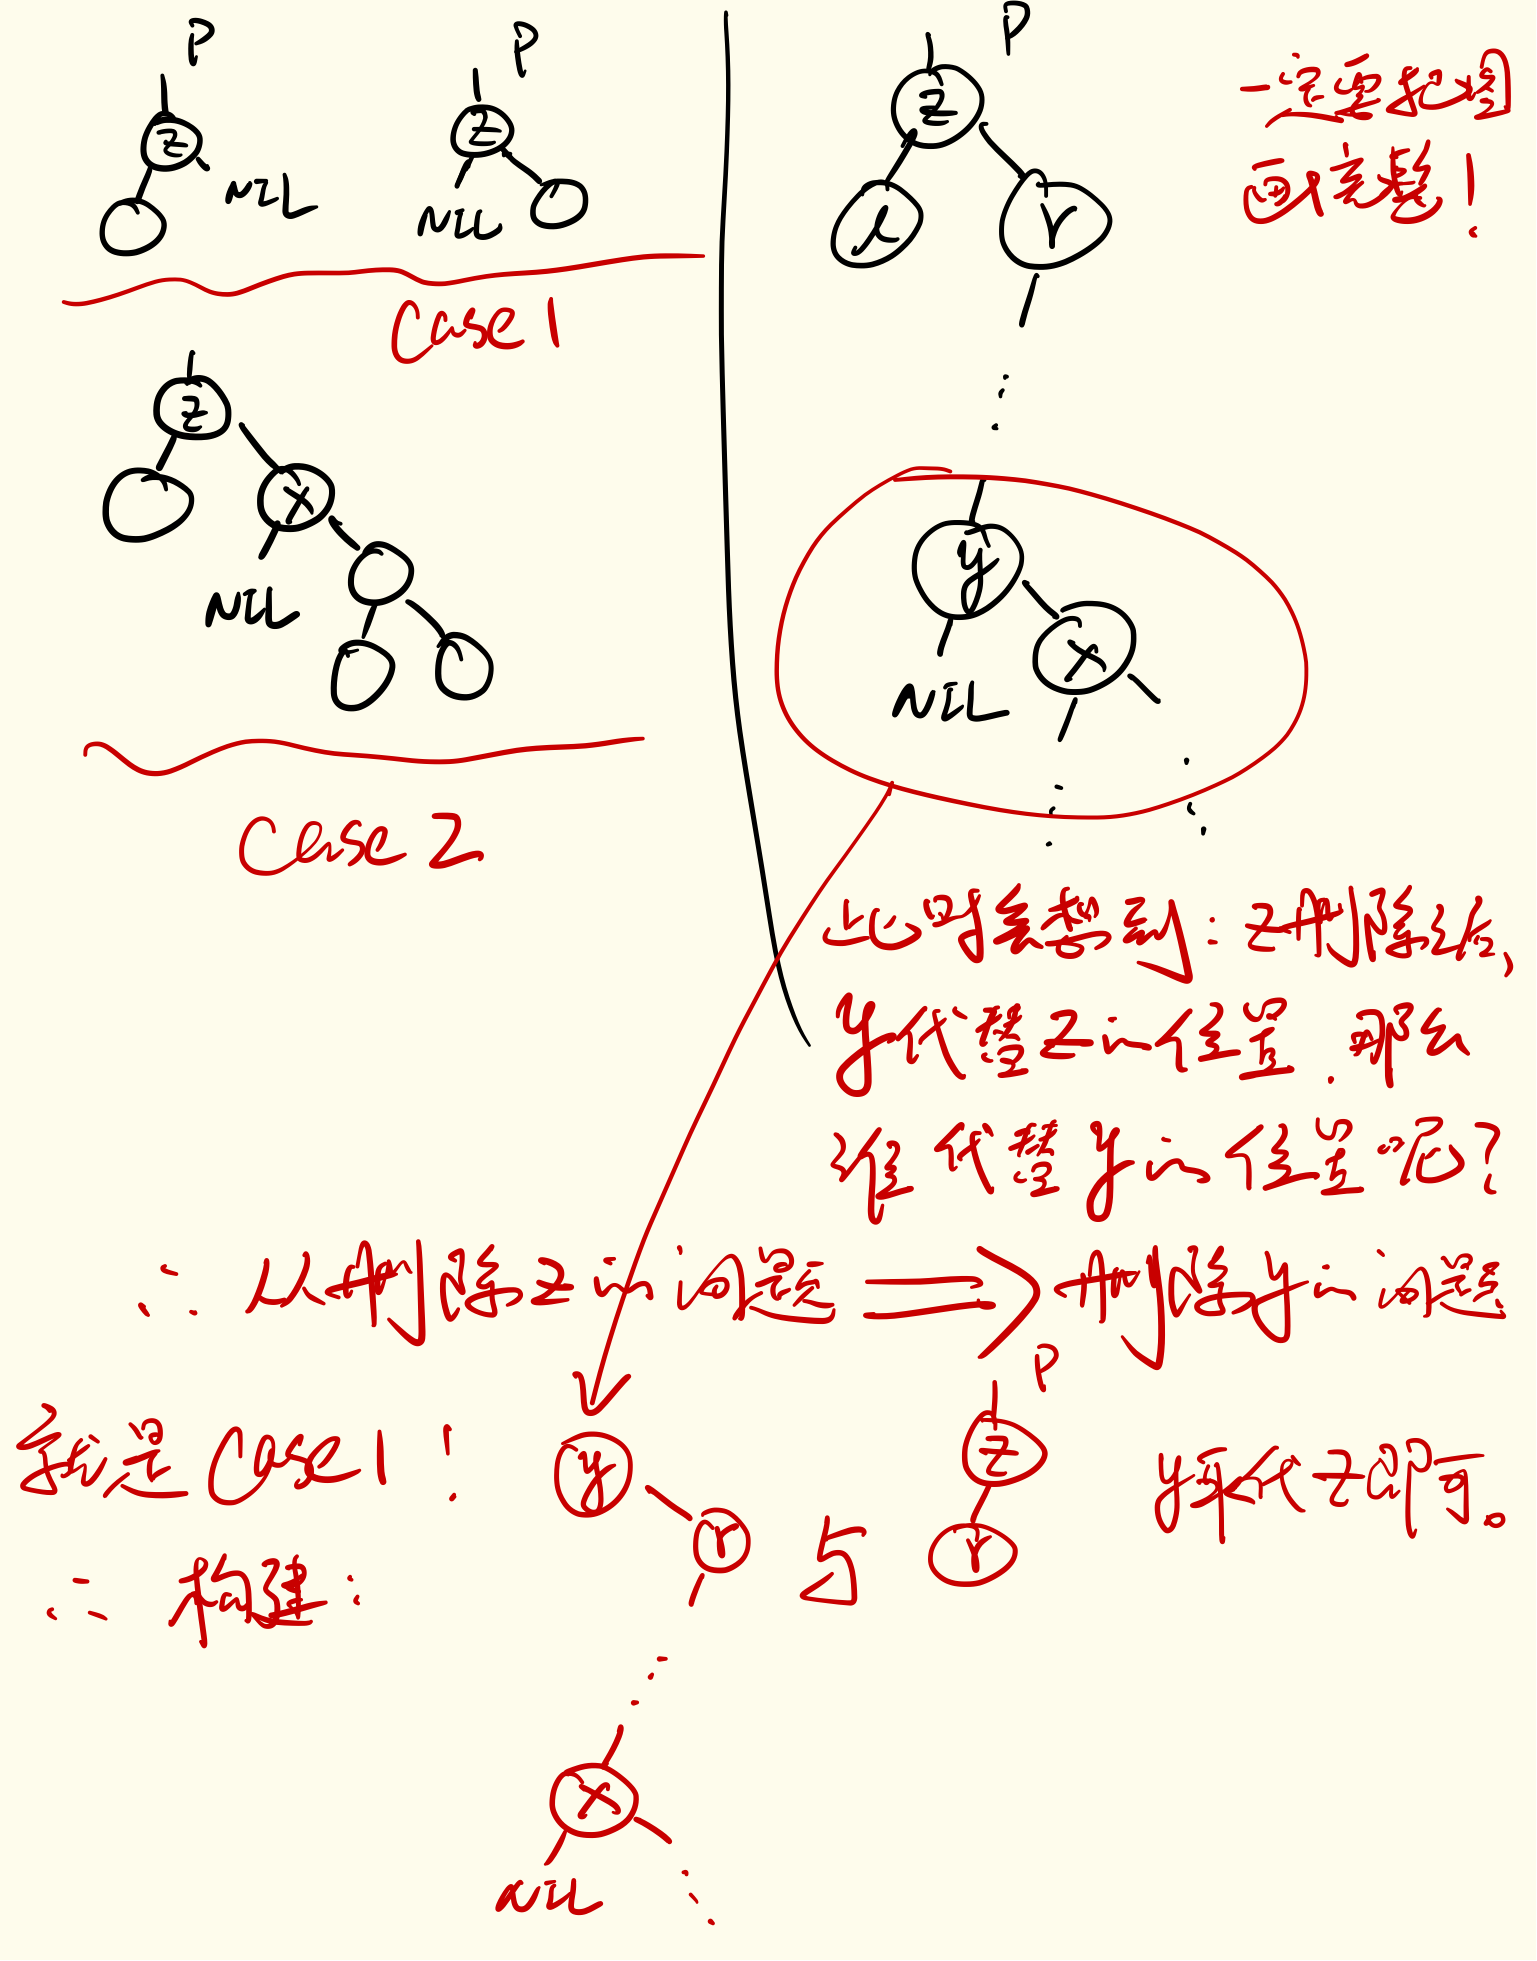 P
z
NIL
P
z
NIL
Case 1
z
x
NIL
Case 2
P
z
l
r
y
x
NIL
一定要把图
画完整！
此时会想到：z删除后，
y代替z的位置．那么
谁代替y的位置呢？
∴ 从删除z的问题 ⟹ 删除y的问题
就是 Case 1！
∴ 构建：
y
r
x
NIL
与
P
z
r
y取代z即可。